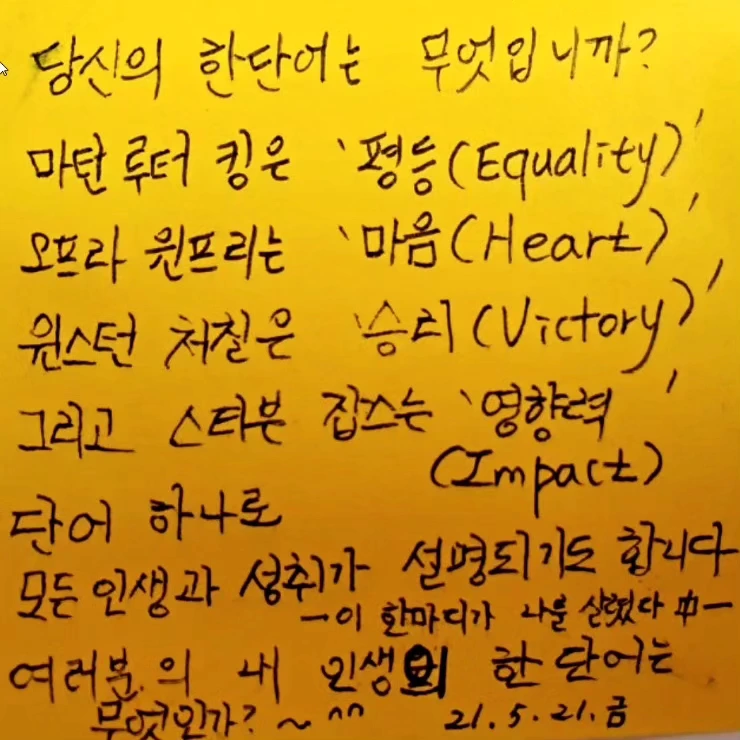 당신의 한단어는 무엇입니까?
마틴 루터 킹은 '평등(Equality)'
오프라 윈프리는 '마음(Heart)'
윈스턴 처칠은 '승리(Victory)'
그리고 스티븐 잡스는 '영향력
(Impact)'
단어 하나로
모든 인생과 성취가 설명되기도 합니다
-이 한마디가 나를 살렸다 中-
여러분의 내 인생의 한 단어는
무엇인가? ~ ^^ 21.5.21.금